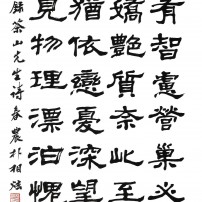 有智慮營巢必
嬌艷質奈此至
猶依戀憂深望
見物理漂泊愧
錄茶山先生诗 春農朴相炫